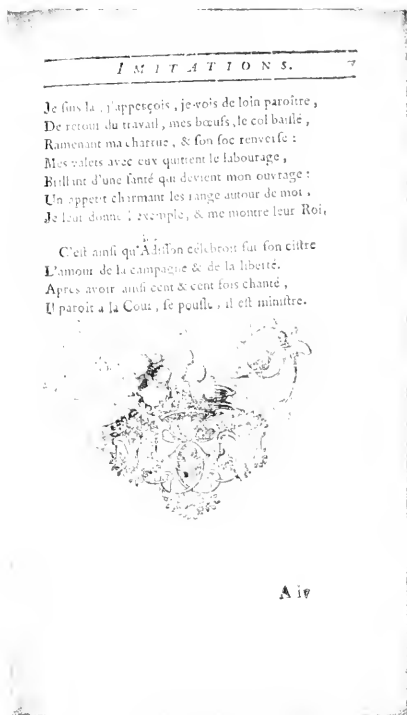 IMITATIONS. 7
Je suis là, j'apperçois, je vois de loin paroître,
De retour du travail, mes bœufs, le col baissé,
Ramenant ma charrue, & son soc renversé :
Mes valets avec eux quittent le labourage,
Brillant d'une santé qui devient mon ouvrage :
Un appetit charmant les range autour de moi,
Je leur donne l'exemple, & me montre leur Roi,
C'est ainsi qu'Adisson célébroit sur son cistre
L'amour de la campagne & de la liberté.
Après avoir ainsi cent & cent fois chanté,
Il paroit à la Cour, se pousse, il est ministre.
A iv